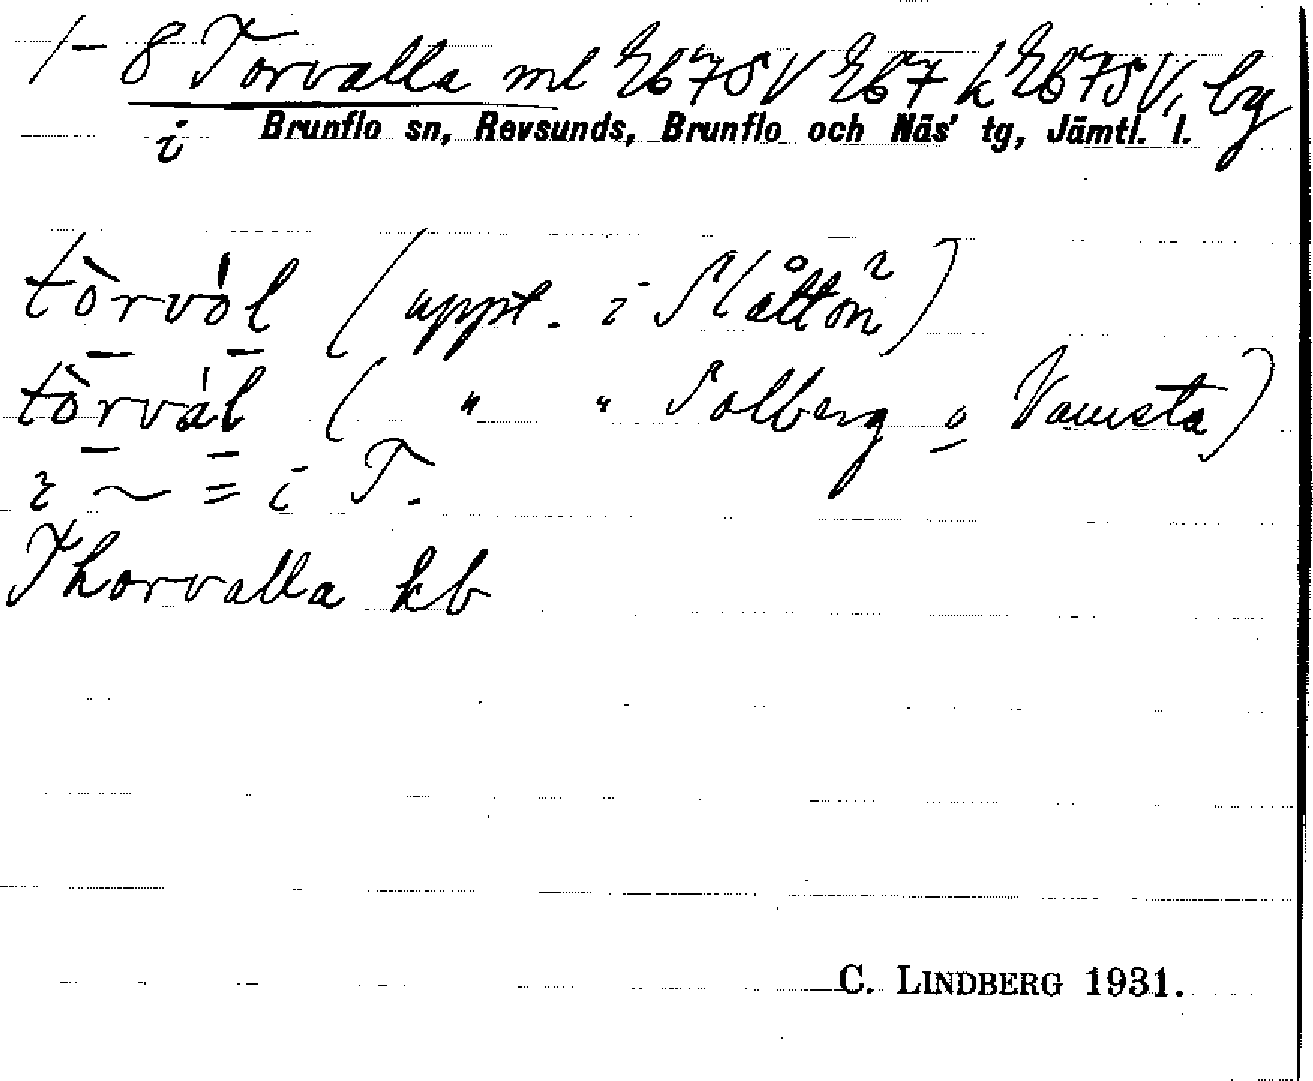 1-8 Torvalla ml Eb7SV Eb7 k Eb7SV, by
i Brunflo sn, Revsunds, Brunflo och Näs' tg, Jämtl. l.
tòrvól (uppt. i Slåtton)
tòrvál ( " " Solberg o Vamsta)
i ~ = i T.
Thorvalla kb
C. LINDBERG 1931.